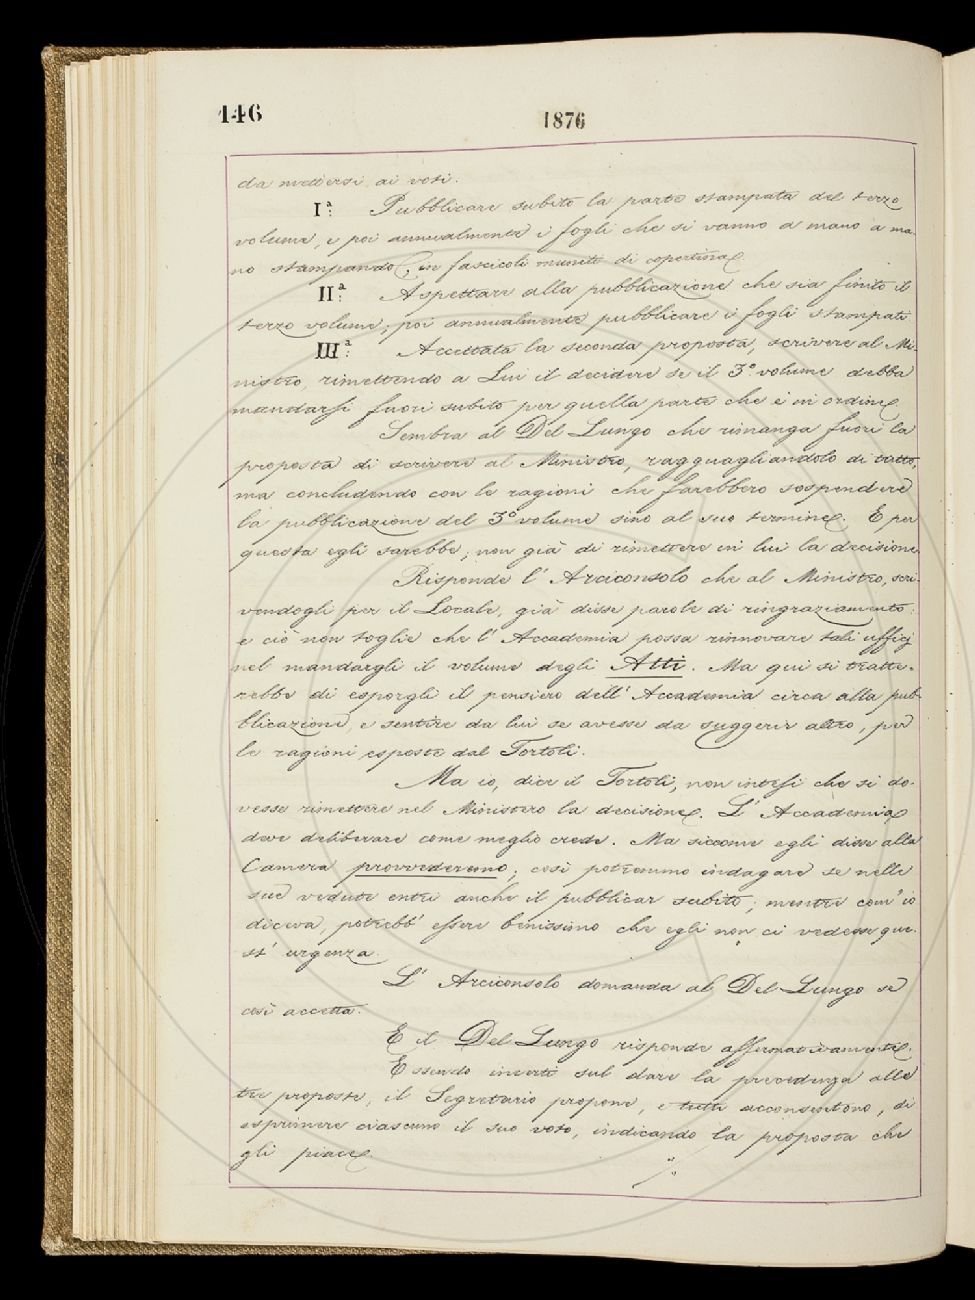 146
1876
da mettersi ai voti.
I.ª Pubblicare subito la parte stampata del terzo
volume, e poi annualmente i fogli che si vanno a mano a ma-
no stampando, in fascicoli muniti di copertina.
II.ª Aspettare alla pubblicazione che sia finito il
terzo volume; poi annualmente pubblicare i fogli stampati
III.ª Accettata la seconda proposta, scrivere al Mi-
nistro, rimettendo a Lui il decidere se il 3.º volume debba
mandarsi fuori subito per quella parte che è in ordine.
Sembra al Del Lungo che rimanga fuori la
proposta di scrivere al Ministro, ragguagliandolo di tutto,
ma concludendo con le ragioni che farebbero sospendere
la pubblicazione del 3º volume sino al suo termine. E per
questa egli sarebbe; non già di rimettere in lui la decisione
Risponde l'Arciconsolo che al Ministro, scri-
vendogli per il Locale, già disse parole di ringraziamento:
e ciò non toglie che l'Accademia possa rinnovare tali ufficj
nel mandargli il volume degli Atti. Ma qui si tratte-
rebbe di esporgli il pensiero dell'Accademia circa alla pub-
blicazione, e sentire da lui se avesse da suggerir altro, per
le ragioni esposte dal Tortoli.
Ma io, dice il Tortoli, non intesi che si do-
vesse rimettere nel Ministro la decisione. L'Accademia
deve deliberare come meglio crede. Ma siccome egli disse alla
Camera provvederemo; così potremmo indagare se nelle
sue vedute entri anche il pubblicar subito; mentre com'io
diceva, potrebb'essere benissimo che egli non ci vedesse que-
st'urgenza.
L'Arciconsolo domanda al Del Lungo se
così accetta.
E il Del Lungo risponde affermativamente.
Essendo incerti sul dare la precedenza alle
tre proposte, il Segretario propone, e tutti acconsentono, di
esprimere ciascuno il suo voto, indicando la proposta che
gli piace.